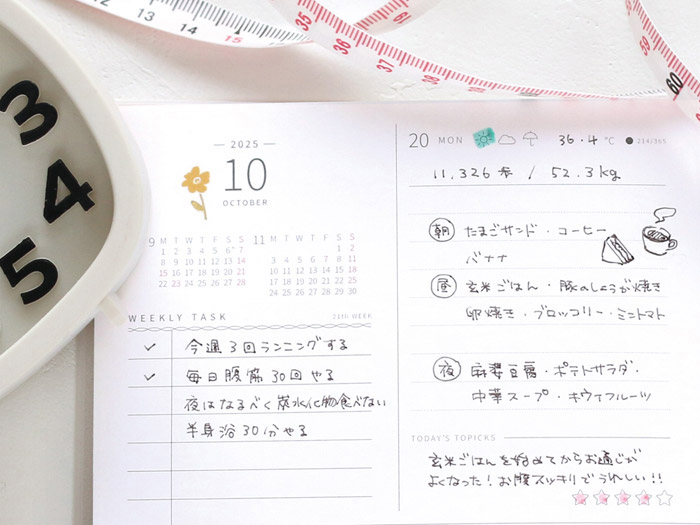 12 13 14 15 16
35 36 37 38 39
61
59
60
3
4
5
— 2025 —
10
OCTOBER
9 M T W T F S S
1 2 3 4 5 6 7
8 9 10 11 12 13 14
15 16 17 18 19 20 21
22 23 24 25 26 27 28
11 M T W T F S S
1 2
3 4 5 6 7 8 9
10 11 12 13 14 15 16
17 18 19 20 21 22 23
24 25 26 27 28 29 30
WEEKLY TASK
21th WEEK
今週3回ランニングする
毎日腹筋30回やる
夜はなるべく炭水化物食べない
半身浴30分やる
20 MON 36.4 ℃ 214/365
11,326歩 / 52.3kg
朝 たまごサンド・コーヒー
バナナ
昼 玄米ごはん・豚のしょうが焼き
卵焼き・ブロッコリー・ミニトマト
夜 麻婆豆腐・ポテトサラダ・
中華スープ・キウイフルーツ
TODAY'S TOPICKS
玄米ごはんを始めてからお通じが
よくなった!お腹スッキリでうれしい!!